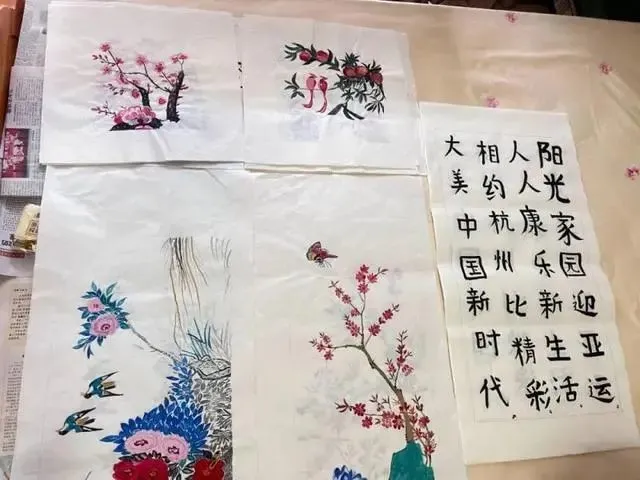 阳光家园迎亚运
人人康乐新生活
相约杭州比精彩
大美中国新时代